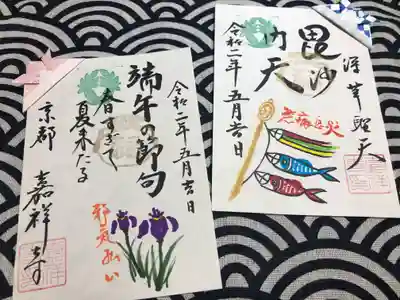 令和二年五月吉日
端午の節句
春すぎて
夏来たる
邪気払い
京都 嘉祥寺
令和二年五月吉日
毘沙
門天
深草聖天
無病息災